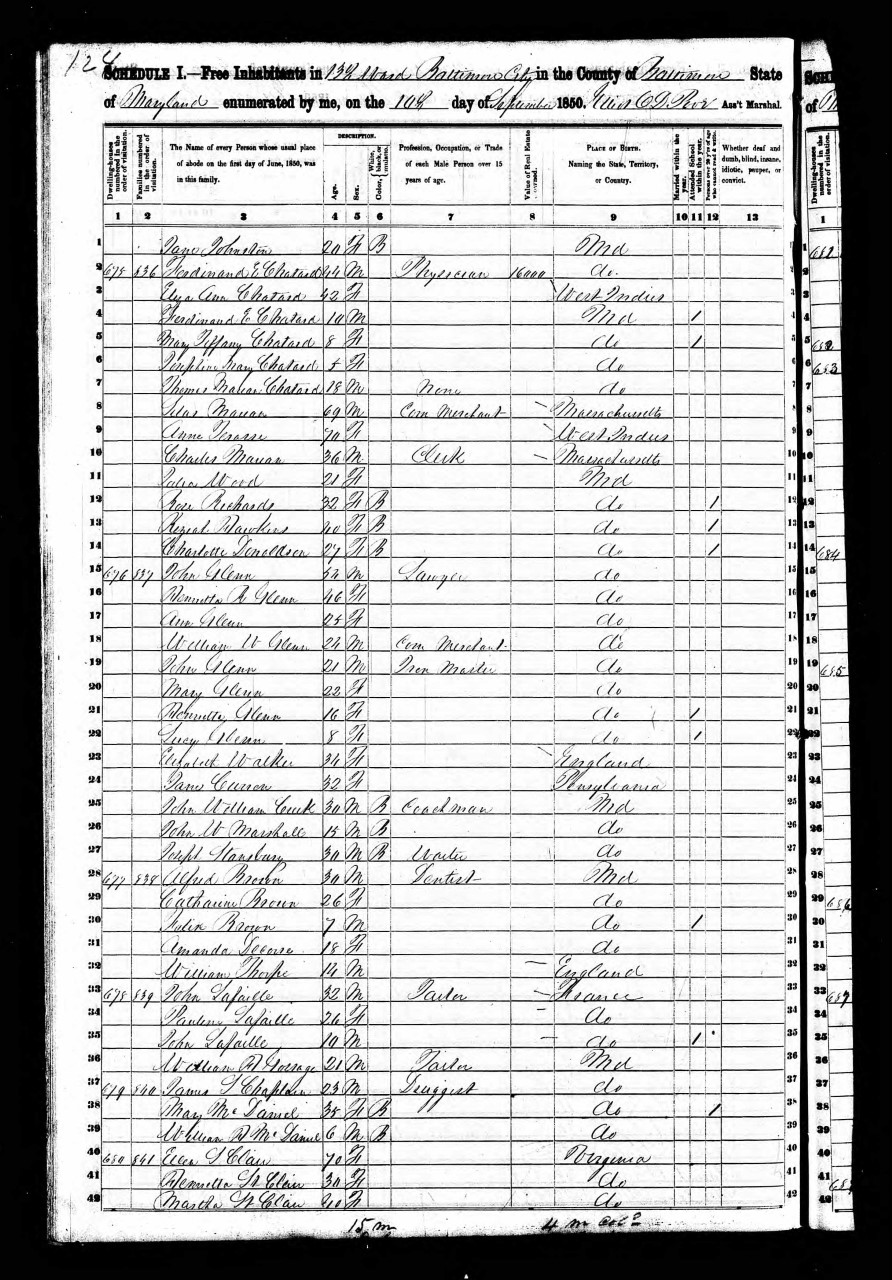 124
SCHEDULE I.—Free Inhabitants in 13th Ward Baltimore City in the County of Baltimore State
of Maryland enumerated by me, on the 10th day of September 1850. Ass't Marshal.
Dwelling-houses numbered in the order of visitation.
Families numbered in the order of visitation.
The Name of every Person whose usual place of abode on the first day of June, 1850, was in this family.
DESCRIPTION.
Age.
Sex.
Color, White, black, or mulatto.
Profession, Occupation, or Trade of each Male Person over 15 years of age.
Value of Real Estate owned.
PLACE OF BIRTH. Naming the State, Territory, or Country.
Married within the year.
Attended School within the year.
Persons over 20 y'rs of age who cannot read & write.
Whether deaf and dumb, blind, insane, idiotic, pauper, or convict.
1 2 3 4 5 6 7 8 9 10 11 12 13
1 Jane Johnston 20 F B Md 1
2 675 836 Ferdinand E Chatard 44 M Physician 16000 do 2
3 Eliza Ann Chatard 42 F West Indies 3
4 Ferdinand E Chatard 10 M Md 1 4
5 Mary Tiffany Chatard 8 F do 1 5
6 Josephine Mary Chatard 5 F do 6
7 Thomas Chatard 18 M None do 7
8 Silas 69 M Com Merchant Massachusetts 8
9 Anna 70 F West Indies 9
10 Charles 36 M Clerk Massachusetts 10
11 Julia Wood 21 F Md 11
12 Rose Richards 32 F B do 1 12
13 Hawkins 40 F B do 1 13
14 Charlotte Donaldson 27 F B do 1 14
15 676 837 John Glenn 54 M Lawyer do 15
16 Henrietta R Glenn 46 F do 16
17 Ann Glenn 25 F do 17
18 William W Glenn 24 M Com Merchant do 18
19 John Glenn 21 M Iron Master do 19
20 Mary Glenn 22 F do 20
21 Henrietta Glenn 16 F do 1 21
22 Lucy Glenn 8 F do 1 22
23 Elizabeth Walker 34 F England 23
24 Jane Curson 32 F Pensylvania 24
25 John William Cook 30 M B Coachman Md 25
26 John W Marshall 15 M B do 26
27 Joseph Stansbury 30 M B Waiter do 27
28 677 838 Alfred Brown 30 M Dentist Md 28
29 Catharine Brown 26 F do 29
30 Felix Brown 7 M do 1 30
31 Amanda 18 F do 31
32 William Thorpe 14 M England 32
33 678 839 John Lafaille 32 M Tailor France 33
34 Pauline Lafaille 26 F do 34
35 John Lafaille 10 M do 1 35
36 William H Gorsage 21 M Tailor Md 36
37 679 840 James S Chaplain 23 M Druggist do 37
38 Mary Mc Daniel 35 F B do 1 38
39 William H Mc Daniel 6 M B do 39
40 680 841 Ellen St Clair 70 F Virginia 40
41 Henrietta St Clair 30 F do 41
42 Martha St Clair 40 F do 42
15 m
4 m Col'd
SCHE
of
Dwelling-houses numbered in the order of visitation.
1
1 681
2
3
4
5 682
6 683
7
8
9
10
11
12
13
14 684
15
16
17
18
19 685
20
21
22
23
24
25
26
27
28
29 686
30
31
32
33 687
34
35
36
37
38
39
40
41
42